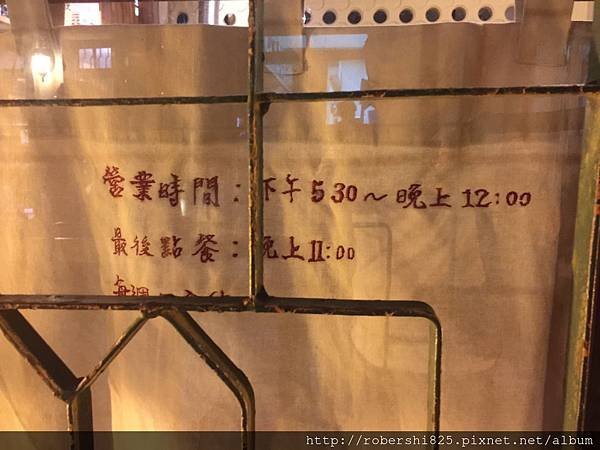 營業時間：下午530～晚上12:00
最後點餐：晚上11:00
每週
http://robershi825.pixnet.net/album